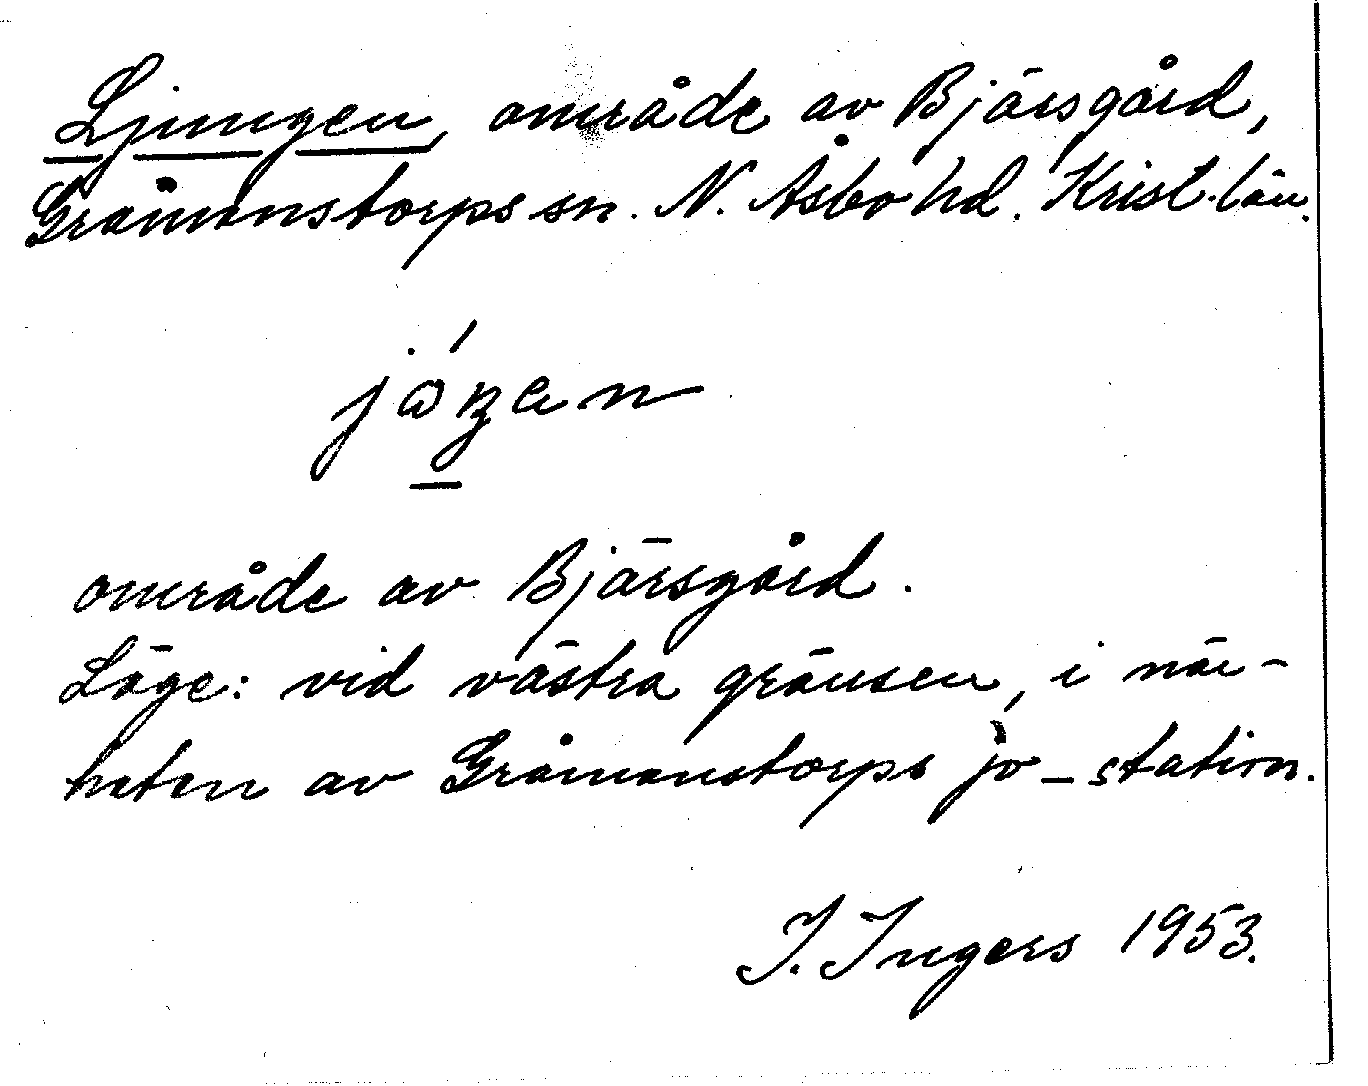 Ljungen, område av Bjärsgård,
Gråmanstorps sn. N. Åsbo hd. Krist. län.
område av Bjärsgård.
Läge: vid västra gränsen, i när-
heten av Gråmanstorps jv-station.
I. Ingers 1953.